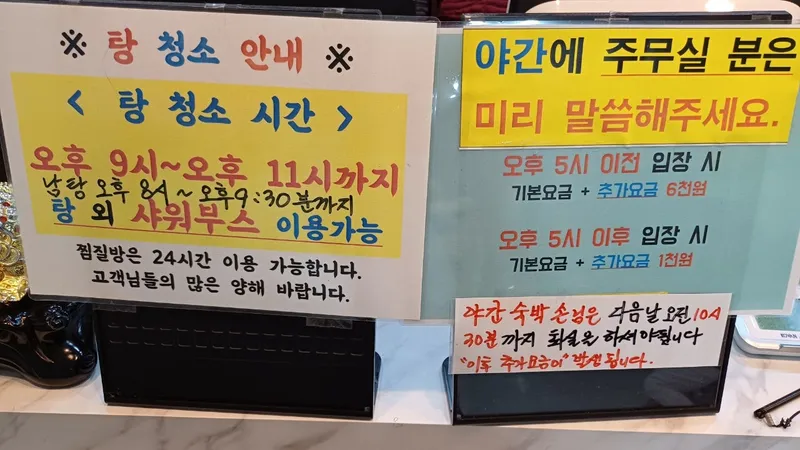 ※ 탕 청소 안내 ※
< 탕 청소 시간 >
오후 9시~오후 11시까지
남탕 오후 8시 ~ 오후9:30분까지
탕 외 샤워부스 이용가능
찜질방은 24시간 이용 가능합니다.
고객님들의 많은 양해 바랍니다.
야간에 주무실 분은
미리 말씀해주세요.
오후 5시 이전 입장 시
기본요금 + 추가요금 6천원
오후 5시 이후 입장 시
기본요금 + 추가요금 1천원
야간 숙박 손님은 다음날 오전 10시
30분 까지 퇴실은 하셔야됩니다
"이후 추가요금이" 발생됩니다.